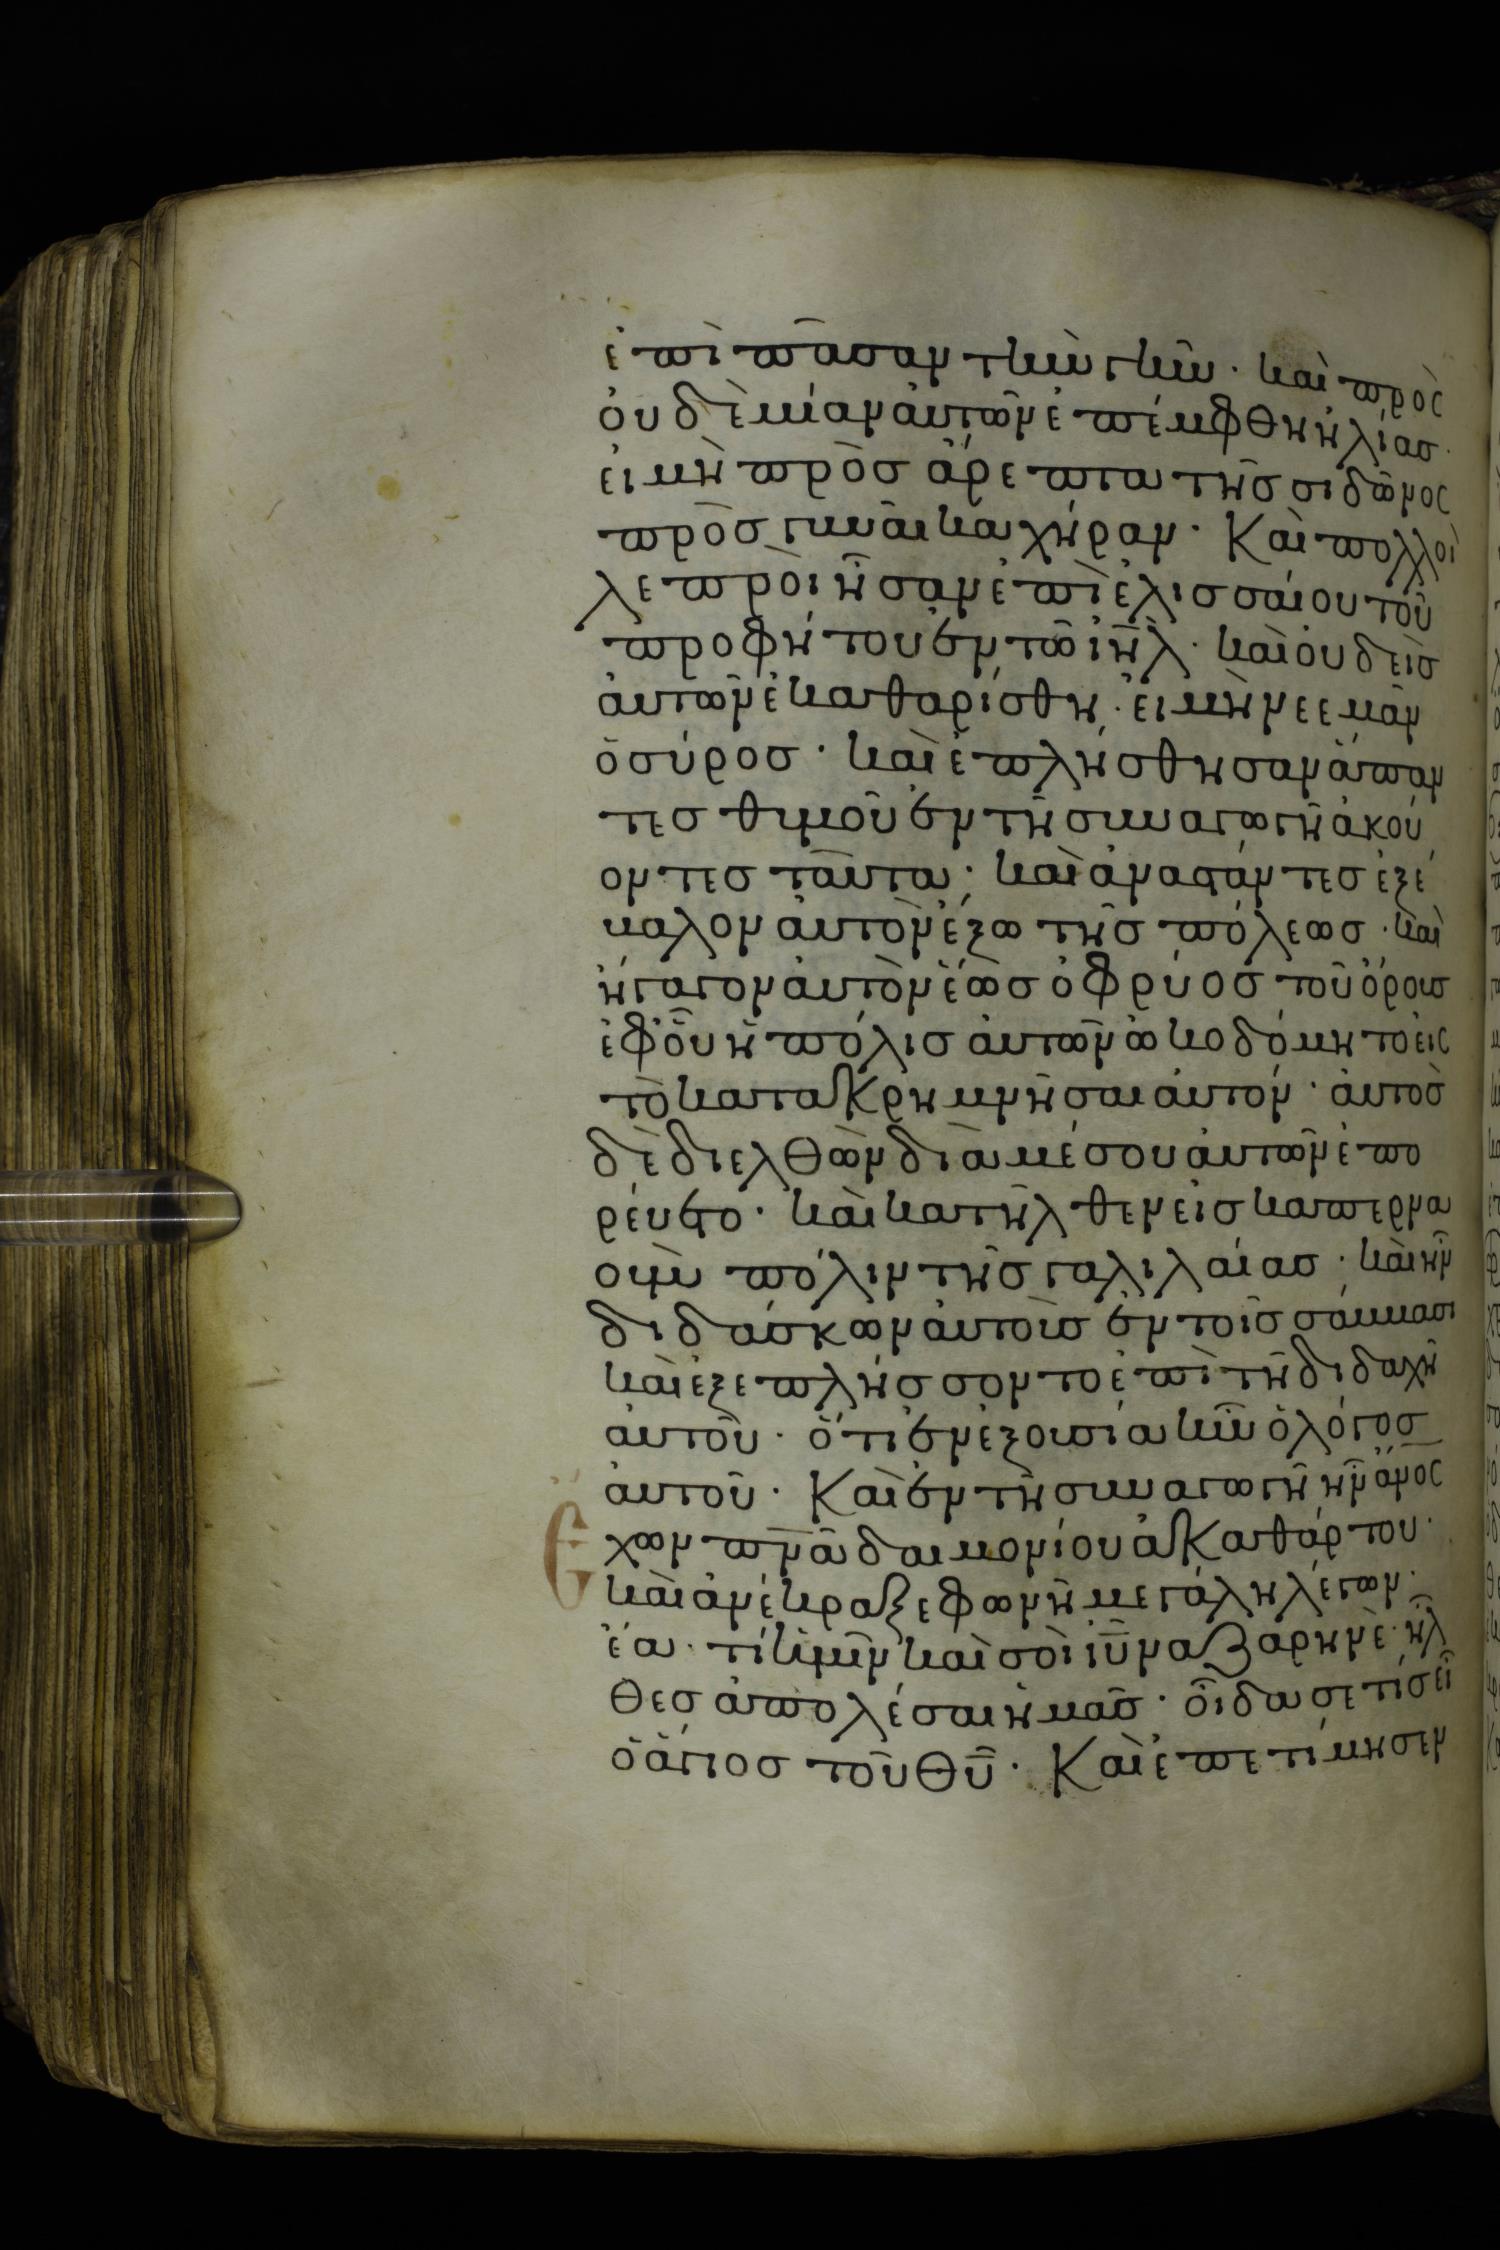 ἐπὶ πᾶσαν τὴν γῆν· καὶ πρὸς
ὀυδεμίαν ἀυτῶν ἐπέμφθη ἡλίας·
εἰ μὴ πρὸς ἄρεπτα τῆς σιδῶνος
πρὸς γυναῖκα χήραν· Καὶ πολλοὶ
λεπροὶ ἦσαν ἐπὶ ἐλισσάιου τοῦ
προφήτου ἐν τῶ ἰη̅λ· καὶ ὀυδεὶς
ἀυτῶν ἐκαθαρίσθη· ἐι μὴ νεεμὰν
ὁ σύρος· καὶ ἐπλήσθησαν ἅπαν
τες θυμοῦ ἐν τῆ συναγωγῆ ἀκού
οντες ταῦτα· καὶ ἀναστάντες ἐξέ
βαλον ἀυτὸν ἔξω τῆς πόλεως· καὶ
ἤγαγον ἀυτὸν ἕως ὀφρύος τοῦ ὄρους
ἐφ οὗ ἡ πόλις ἀυτῶν ὠκοδόμητο εἰς
τὸ κατακρημνῆσαι ἀυτόν· ἀυτὸς
δὲ διελθὼν διὰ μέσου ἀυτῶν ἐπο
ρέυετο· καὶ κατῆλθεν ἐις καπερνα
οὺμ πόλιν τῆς γαλιλάιας· καὶ ἦν
διδάσκων ἀυτοὺς ἐν τοῖς σάββασι
καὶ ἐξεπλήσσοντο ἐπὶ τῆ διδαχῆ
ἀυτοῦ· ὅτι ἐν ἐξουσία ἦν ὁ λόγος
ἀυτοῦ· Καὶ ἐν τῆ συναγωγῆ ἦν ἄνος
Ἔχων πν̅α δαιμονίου ἀκαθάρτου·
καὶ ἀνέκραξε φωνῆ μεγάλη λέγων·
ἔα· τί ἡμῖν καὶ σοὶ ιῦ ναζαρηνέ· ἦλ
θες ἀπολέσαι ἡμᾶς· οἶδα σε τίς εἶ
ὁ ἅγιος τοῦ θῦ· Καὶ ἐπετίμησεν